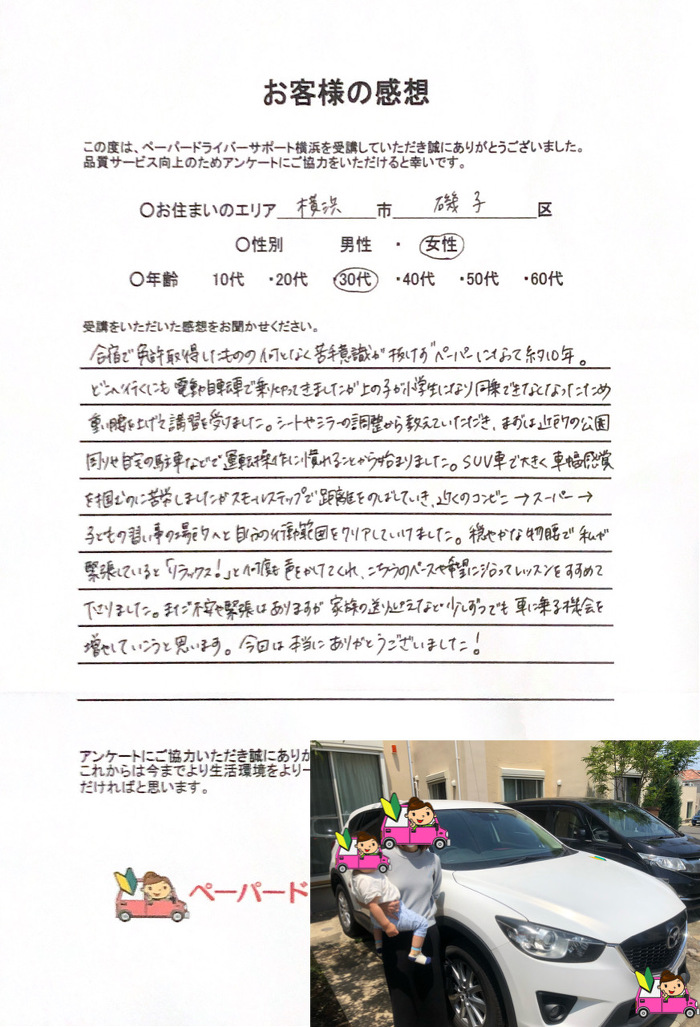 お客様の感想
この度は、ペーパードライバーサポート横浜を受講していただき誠にありがとうございました。
品質サービス向上のためアンケートにご協力をいただけると幸いです。
〇お住まいのエリア 横浜 市 磯子 区
〇性別 男性 ・ 女性
〇年齢 10代 ・20代 ・30代 ・40代 ・50代 ・60代
受講をいただいた感想をお聞かせください。
合宿で免許取得したものの何となく苦手意識が抜けず ペーパーになって約10年。
どこへ行くにも電動自転車で乗りきってきましたが上の子が小学生になり同乗できなくなったため
重い腰を上げて講習を受けました。シートやミラーの調整から教えていただき、まずは近所の公園
周りや自宅の駐車などで運転操作に慣れることから始まりました。SUV車で大きく車幅感覚
を掴むのに苦労しましたがスモールステップで距離をのばしていき、近くのコンビニ→スーパー→
子どもの習い事の場所へと自分の行動範囲をクリアしていけました。穏やかな物腰で私が
緊張していると「リラックス!」と何度も声をかけてくれ、こちらのペースや希望に沿ってレッスンをすすめて
下さりました。まだ不安や緊張はありますが家族の送り迎えなど少しずつでも車に乗る機会を
増やしていこうと思います。今回は本当にありがとうございました!
アンケートにご協力いただき誠にありが
これからは今までより生活環境をより一
だければと思います。
ペーパード